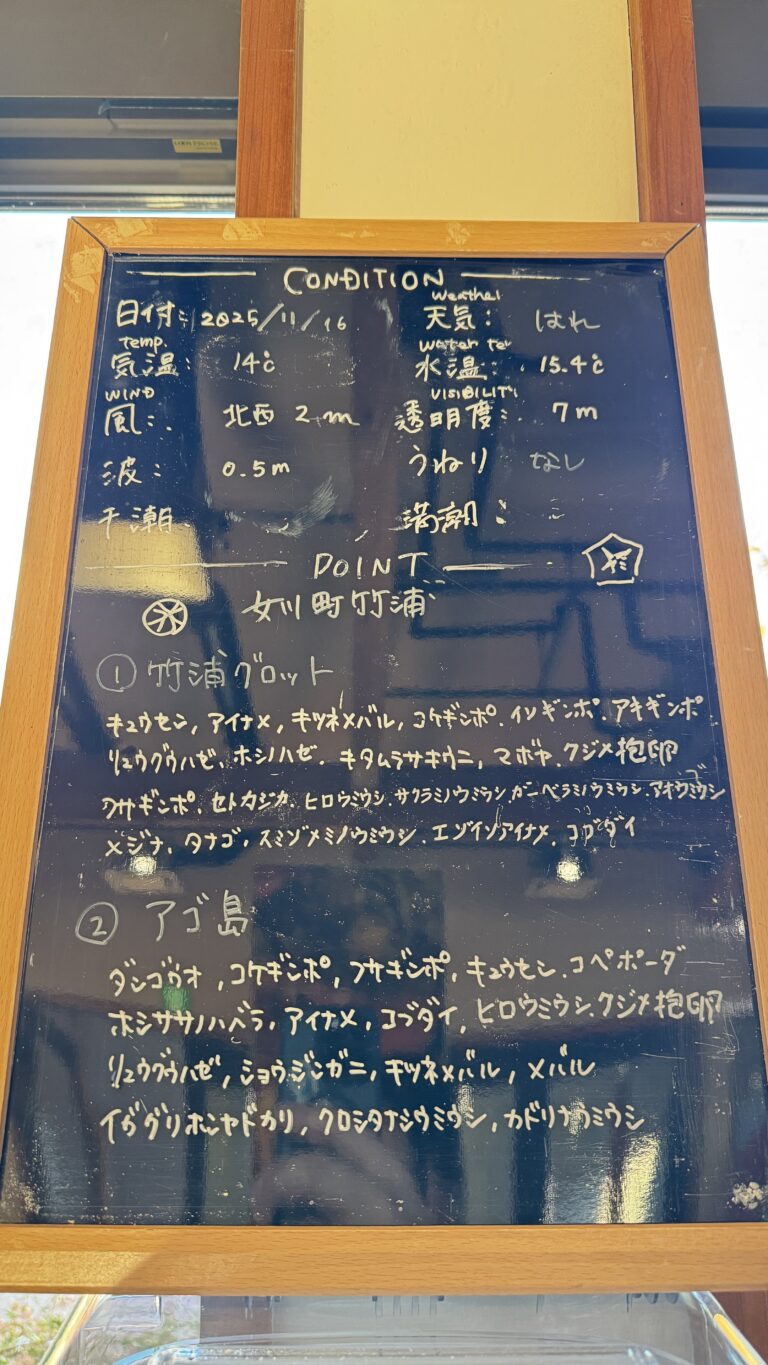 CONDITION
日付: 2025/11/16
Weather
天気: はれ
Temp.
気温: 14℃
Water te
水温: 15.4℃
WIND
風: 北西 2m
VISIBILITY
透明度: 7m
波: 0.5m
うねり なし
干潮
満潮:
POINT
女川町竹浦
① 竹浦グロット
キュウセン, アイナメ, キツネメバル, コケギンポ. イソギンポ. アキギンポ
リュウグウハゼ. ホシノハゼ. キタムラサキウニ, マボヤ. クジメ抱卵
フサギンポ. セトカジカ. ヒロウミウシ. サクラミノウミウシ. ガーベラミノウミウシ. アオウミウシ
メジナ. タナゴ. スミゾメミノウミウシ. エゾイソアイナメ. コブダイ
② アゴ島
ダンゴウオ, コケギンポ, フサギンポ. キュウセン. コペポーダ
ホシササノハベラ, アイナメ, コブダイ, ヒロウミウシ. クジメ抱卵
リュウグウハゼ, ショウジンガニ, キツネメバル, メバル
イガグリホンヤドカリ, クロシタナシウミウシ, カドリナウミウシ